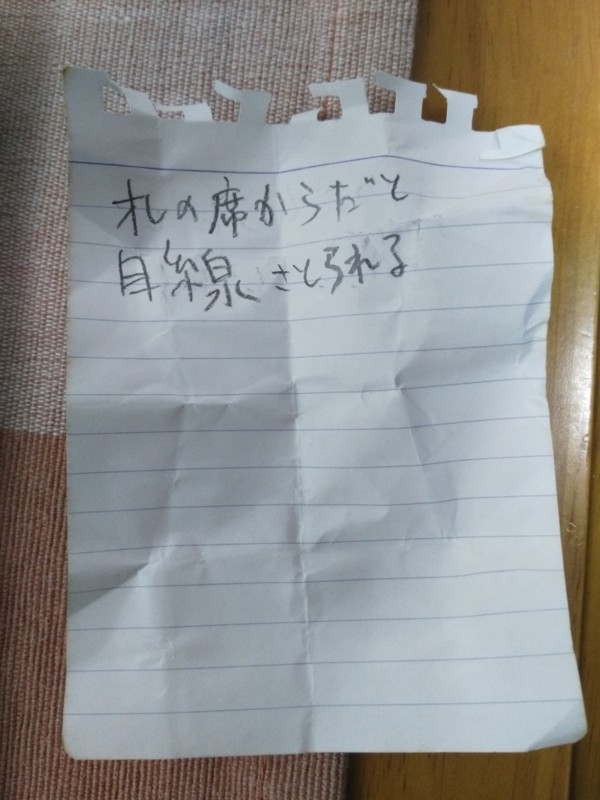 オレの席からだと
目線さとられる